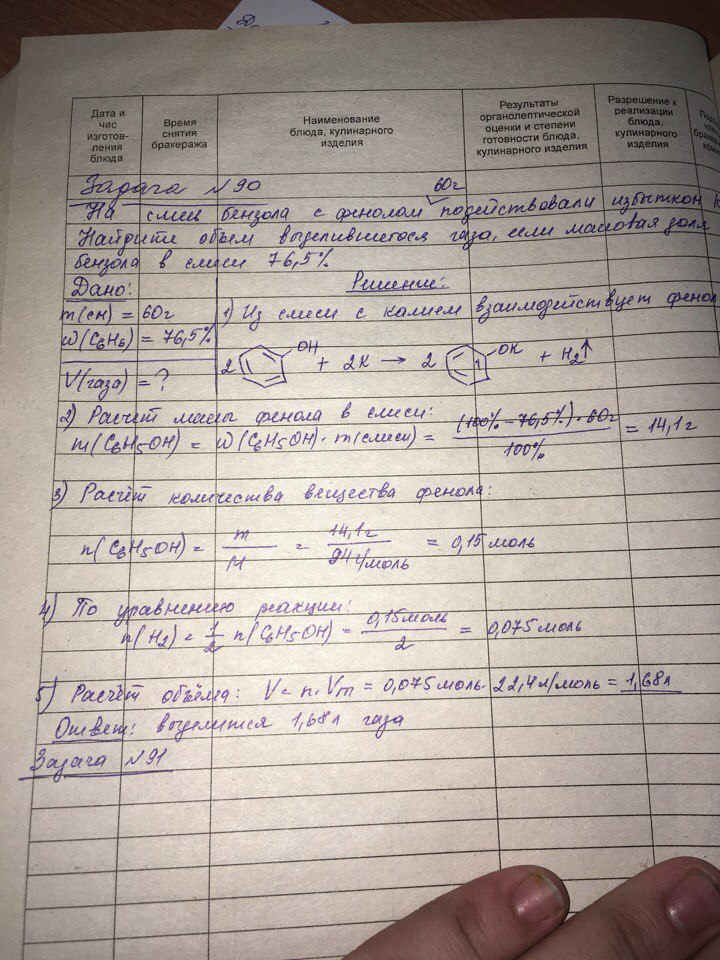 Дата и час изготов-ления блюда
Время снятия бракеража
Наименование блюда, кулинарного изделия
Результаты органолептической оценки и степени готовности блюда, кулинарного изделия
Разрешение к реализации блюда, кулинарного изделия
Задача №90
60г
На смесь бензола с фенолом подействовали избытком К
Найдите объем выделившегося газа, если массовая доля
бензола в смеси 76,5%
Дано: Решение:
m(см) = 60г 1) Из смеси с калием взаимодействует фенол
ω(C6H6) = 76,5%
2 OH + 2K → 2 OK + H2↑
V(газа) = ?
2) Расчёт массы фенола в смеси:
m(C6H5OH) = ω(C6H5OH) · m(смеси) = (100% - 76,5%) · 60г / 100% = 14,1г
3) Расчёт количества вещества фенола:
n(C6H5OH) = m / M = 14,1г / 94г/моль = 0,15 моль
4) По уравнению реакции:
n(H2) = 1/2 n(C6H5OH) = 0,15моль / 2 = 0,075 моль
5) Расчёт объёма: V = n · Vm = 0,075 моль · 22,4л/моль = 1,68л
Ответ: выделится 1,68л газа
Задача №91